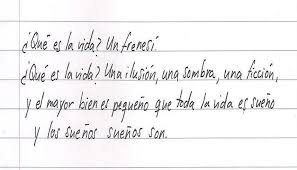 ¿Qué es la vida? Un frenesí.
¿Qué es la vida? Una ilusión, una sombra, una ficción,
y el mayor bien es pequeño que toda la vida es sueño
y los sueños sueños son.